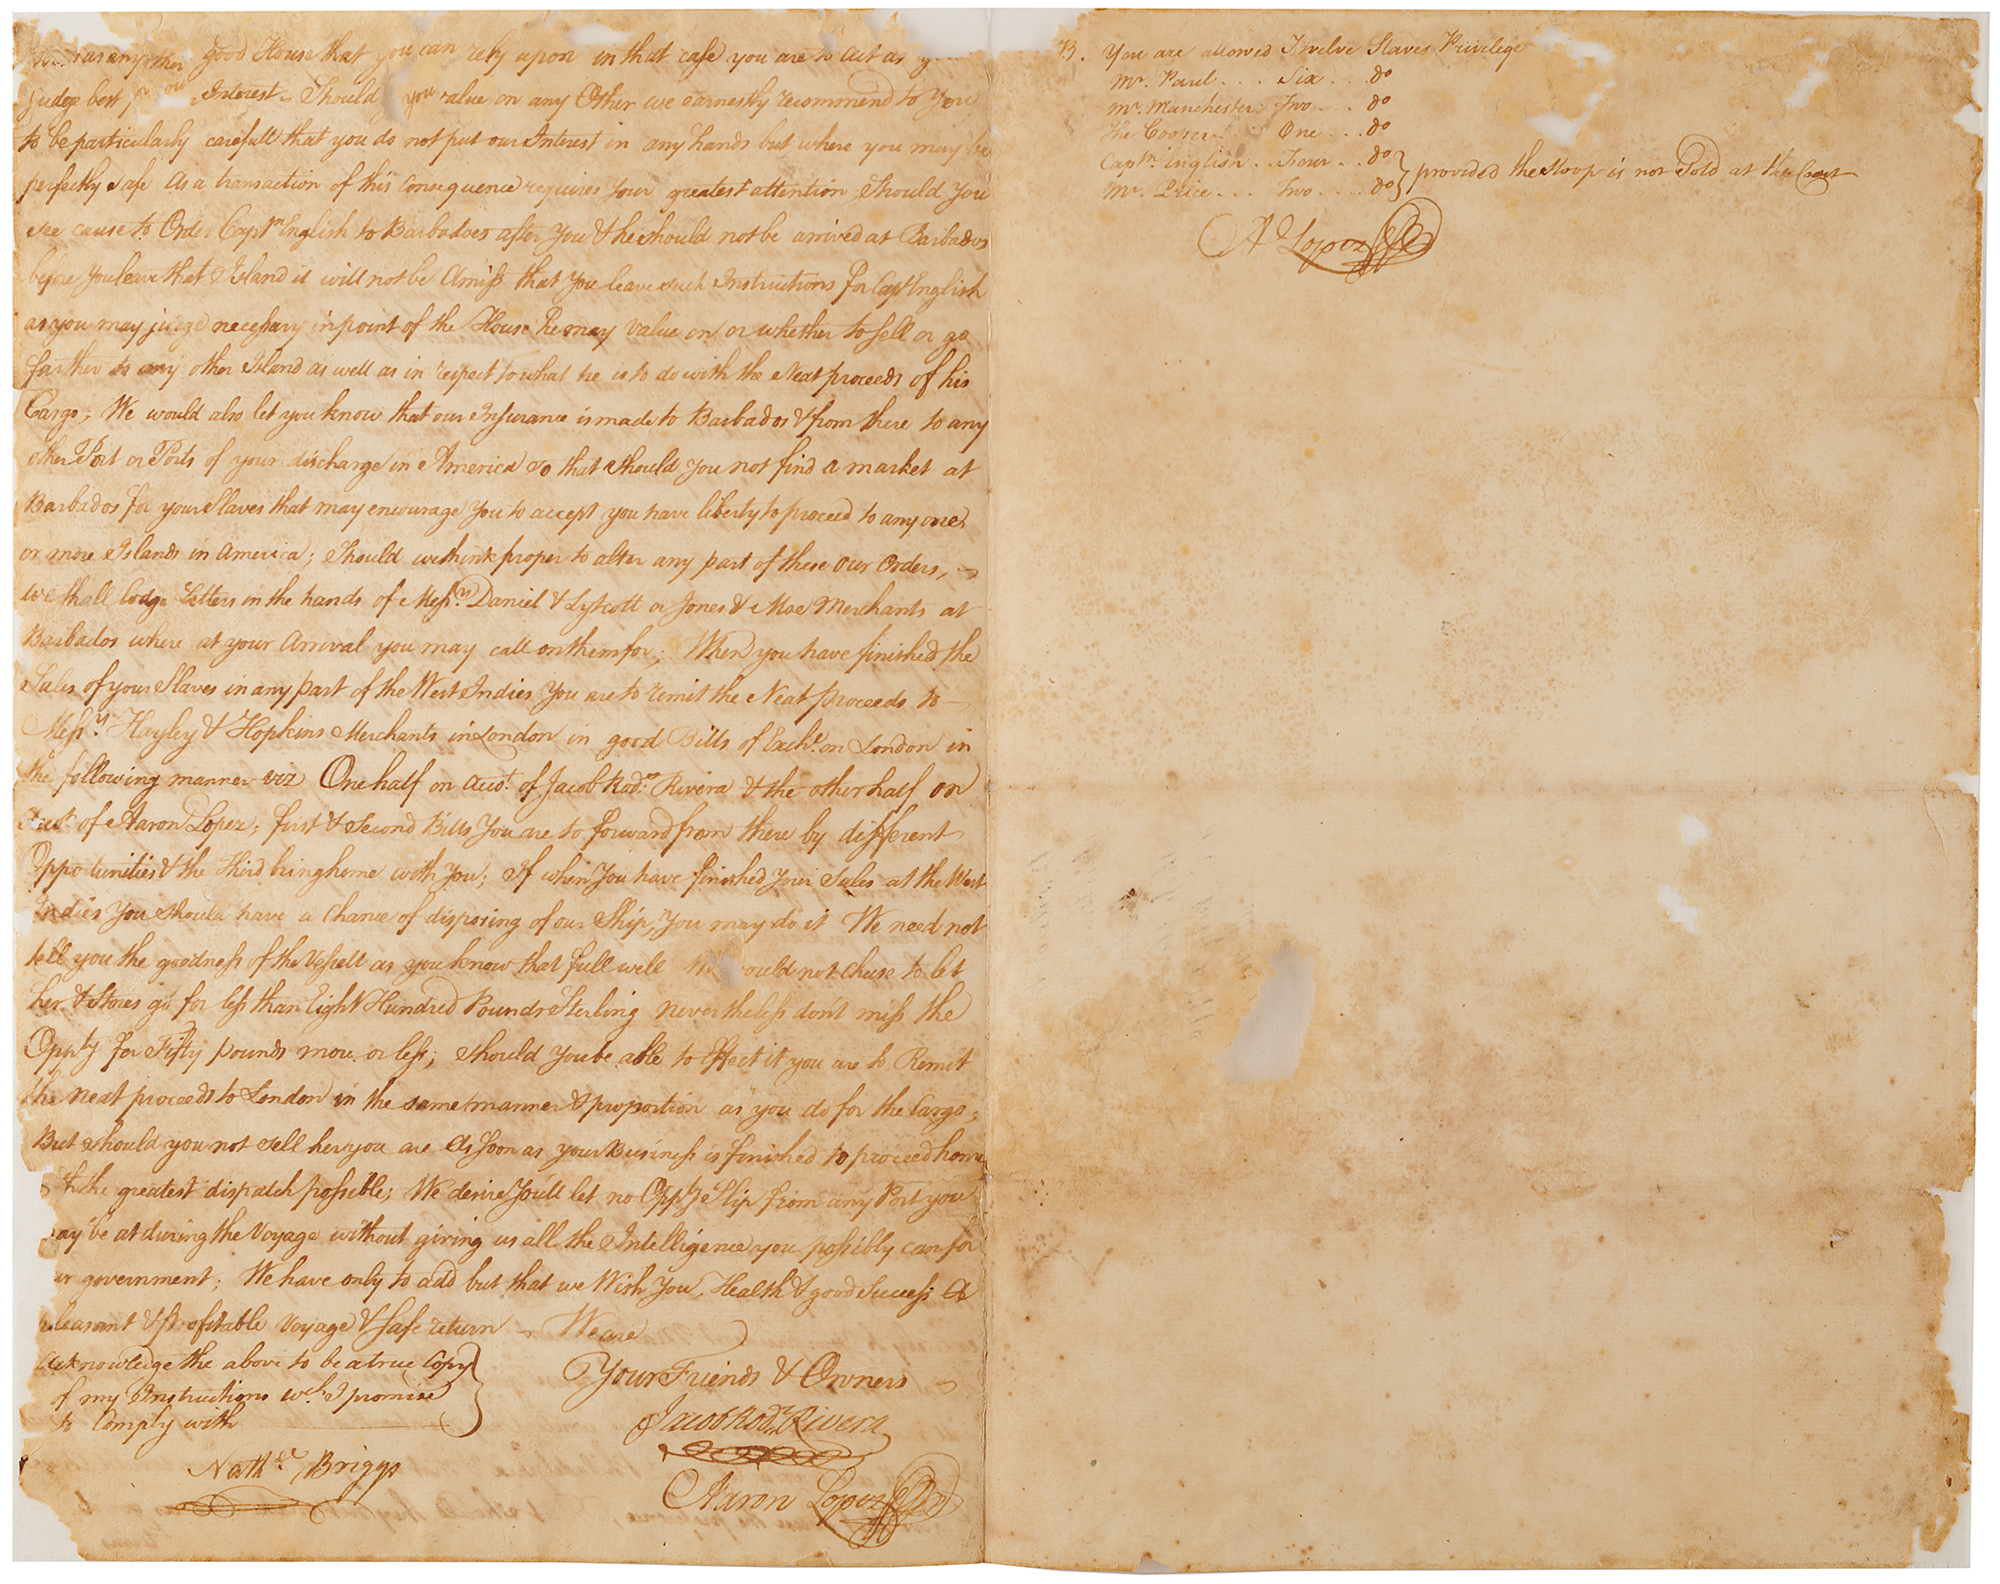 as any other good House that you can rely upon in that case you are to act as
judge best for our Interest. Should you value on any Other we earnestly recommend to You
to be particularly carefull that you do not put our Interest in any hands but where you may be
perfectly safe as a transaction of this Consequence requires your greatest attention, Should you
see cause to Order Captn. English to Barbadoes after you & he should not be arrived at Barbados
before you leave that Island it will not be Amiss that you leave such Instructions for Capt English
as you may judge necessary in point of the House he may value on or whether to sell or go
farther to any other Island as well as in respect to what he is to do with the Neat proceeds of his
Cargo; We would also let you know that our Insurance is made to Barbados & from there to any
other Port or Ports of your discharge in America so that should you not find a market at
Barbados for your Slaves that may encourage you to accept you have liberty to proceed to any one
or more Islands in America; Should we think proper to alter any part of these our Orders,
we shall lodge Letters in the hands of Messrs. Daniel & Lytcott or Jones & Moe Merchants at
Barbados where at your Arrival you may call on them for; When you have finished the
Sales of your Slaves in any part of the West Indies you are to remit the Neat proceeds to
Messrs. Hayley & Hopkins Merchants in London in good Bills of Exche. on London in
the following manner viz One half on Acct. of Jacob Rodr. Rivera & the other half on
Acct. of Aaron Lopez; first & second Bills You are to forward from there by different
Oppotunities & the third bring home with you; If when You have finished your Sales at the West
Indies You should have a chance of disposing of our Ship, You may do it We need not
tell you the goodness of the Vessell as you know that full well ould not chuse to let
her & Stores go for less than Eight Hundred Pounds Sterling nevertheless don't miss the
Oppty for Fifty pounds more or less; should you be able to Effect it you are to Remit
the neat proceeds to London in the same manner & proportion as you do for the Cargo;
But should you not sell her you are as soon as your Business is finished to proceed home
the greatest dispatch possible; We desire You'll let no Oppty slip from any Port you
may be at during the Voyage without giving us all the Intelligence you possibly can for
our government; We have only to add but that we Wish You, Health & good Success A
pleasant & profitable Voyage & safe return We are
Your Friends & Owners
Jacob Rodr. Rivera
Aaron Lopez
Acknowledge the above to be a true Copy
of my Instructions wch. I promise
to Comply with
Nathel. Briggs
B. You are allowed Twelve Slaves Privilege
Mr. Paul . . . Six . . . do
Mr. Manchester . Two . . . do
the Cooper . . . One . . . do
Captn. English . . Four . . do
Mr. Price . . . Two . . . . do } provided the Sloop is not Sold at the Coast
An Lopez